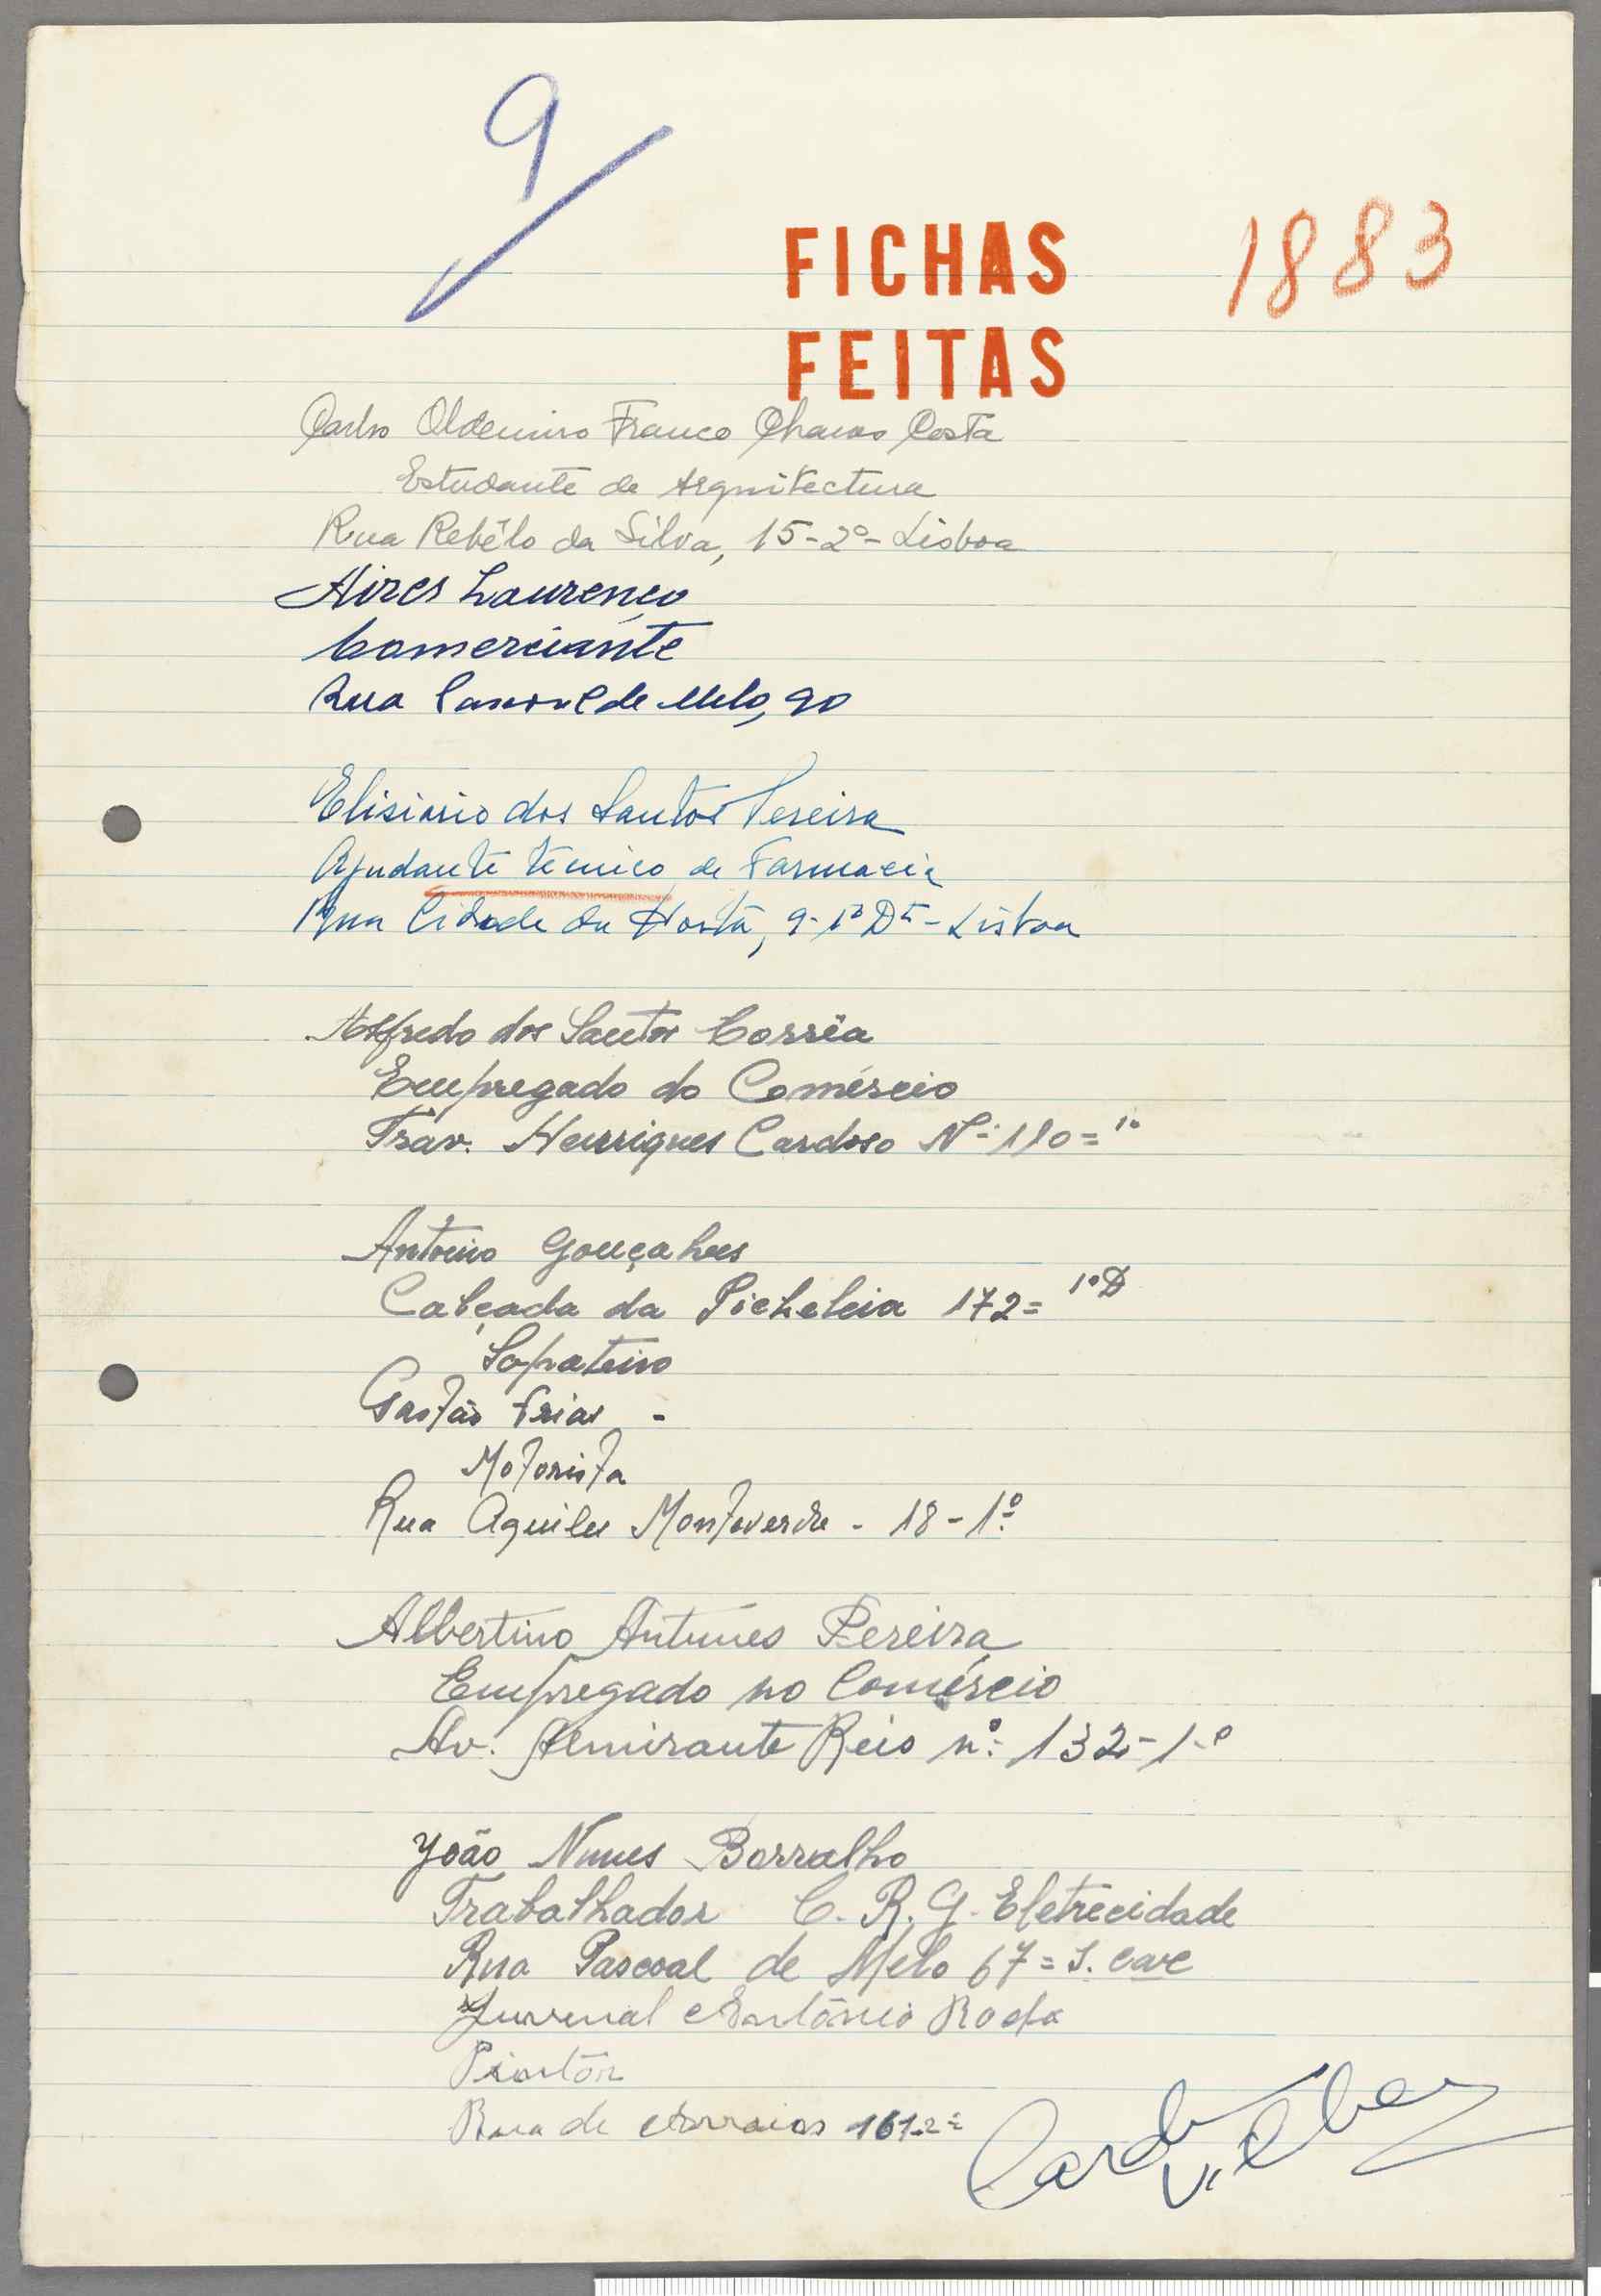 9
FICHAS
FEITAS
1883
Carlos Oldemiro Franco Chaves Costa
Estudante de Arquitectura
Rua Rebêlo da Silva, 15-2º- Lisboa
Aires Lourenço
Comerciante
Rua Pascoal de Melo, 90
Elisiário dos Santos Pereira
Ajudante técnico de Farmacia
Rua Cidade da Horta, 9-1º Dtº - Lisboa
Alfredo dos Santos Corrêa
Empregado do Comércio
Trav. Henriques Cardoso Nº 110=1º
Antonio Gonçalves
Calçada da Picheleia 172= 1º D
Sapateiro
Gastão Frias -
Motorista
Rua Aquiles Monteverde - 18-1º
Albertino Antunes Pereira
Empregado no Comércio
Av. Almirante Reis nº 132-1.º
João Nunes Borralho
Trabalhador C. R. G. Eletrecidade
Rua Pascoal de Melo 67= S. cave
Juvenal António
Pintôr
Rua de Arroios 161-2º